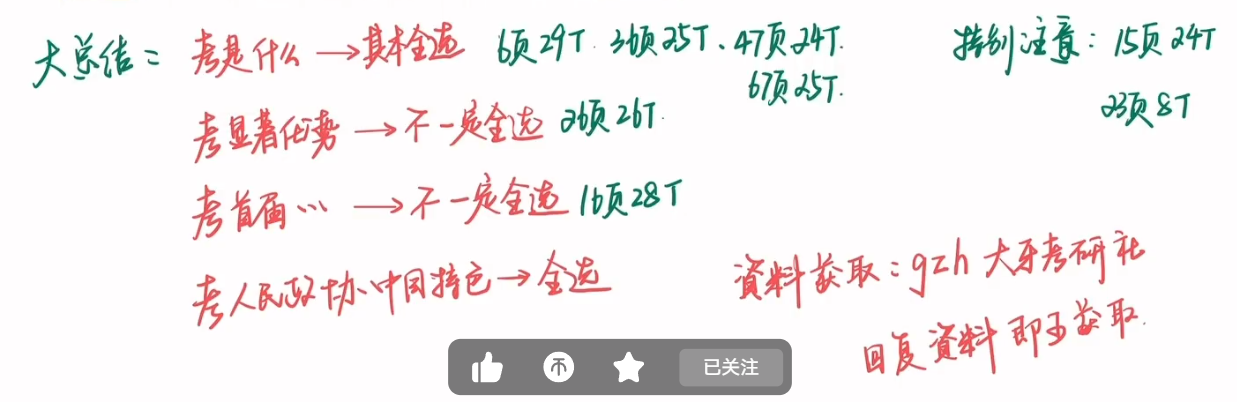 大总结：考是什么→基本全选 6页29T. 36页25T、47页24T. 特别注意：15页24T
67页25T.
23页8T
考显著优势→不一定全选 26页26T.
考首届…→不一定全选 16页28T
考人民政协、中国特色→全选
資料获取：gzh 大牙考研社
回复資料即可获取.
已关注